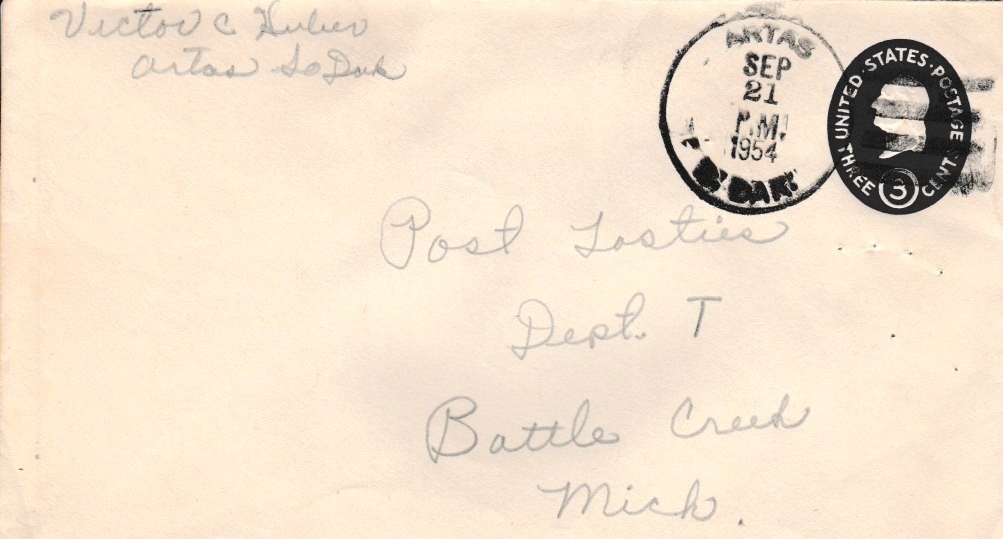 Victor C Huber
Artas So Dak
ARTAS
SEP
21
P.M.
1954
S. DAK.
UNITED · STATES · POSTAGE
THREE 3 CENTS
Post Tosties
Dept. T
Battle Creek
Mich.